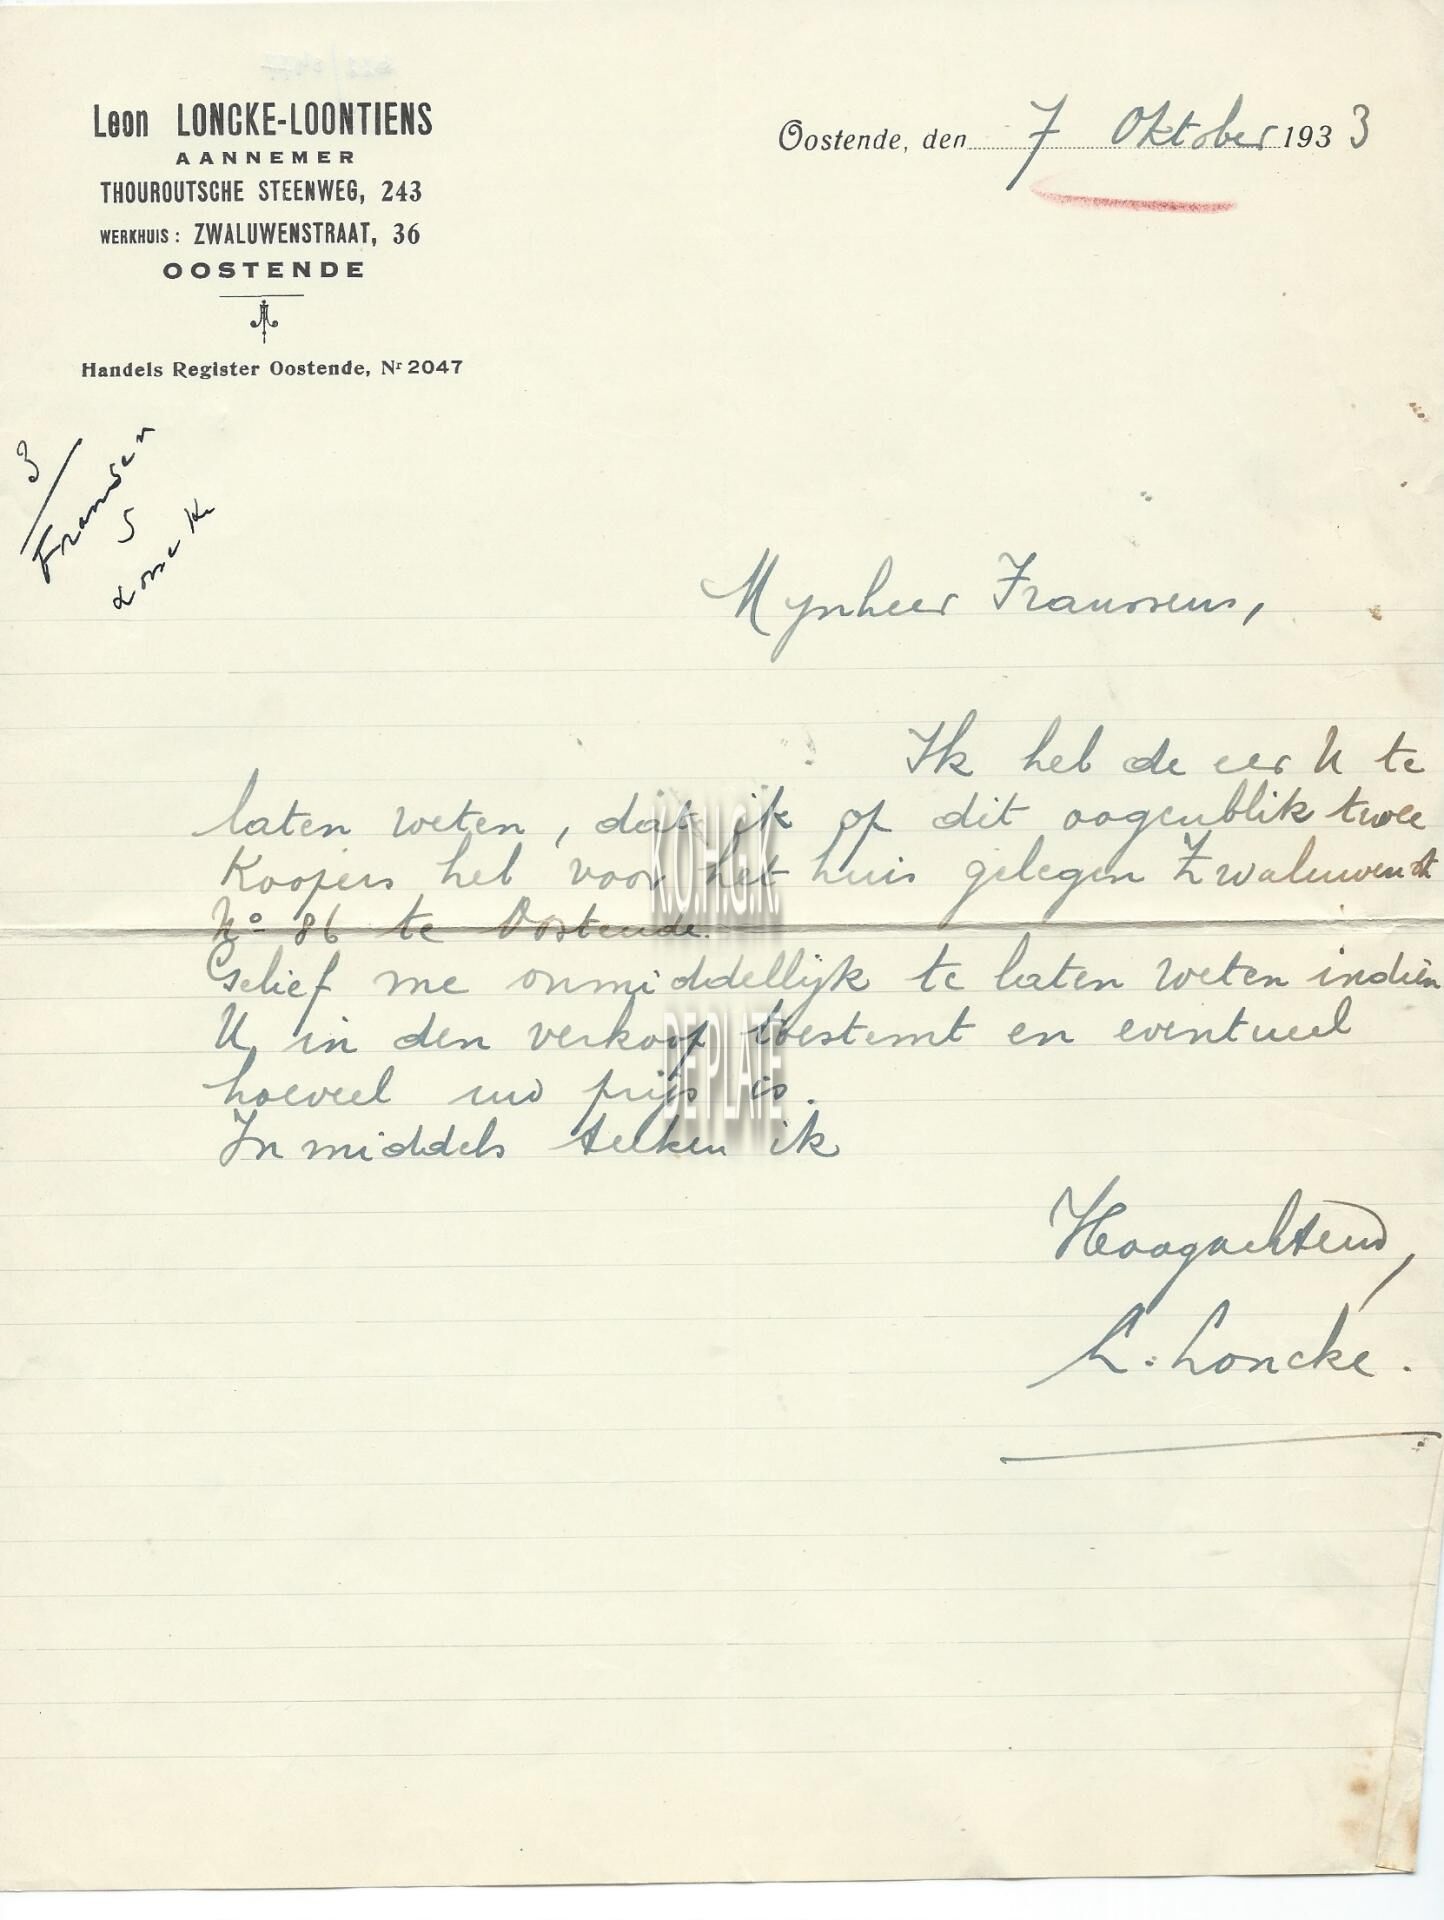 Leon LONCKE-LOONTIENS
AANNEMER
THOUROUTSCHE STEENWEG, 243
WERKHUIS : ZWALUWENSTRAAT, 36
OOSTENDE
Handels Register Oostende, Nr 2047
Oostende, den 7 Oktober 1933
3
Franssen
5
Lonck
Mynheer Franssens,
Ik heb de eer U te
laten weten, dat ik op dit oogenblik twee
Koopers heb voor het huis gelegen Zwaluwenst
No 86 te Oostende.
Gelief me onmiddellijk te laten weten indien
U in den verkoop toestemt en eventueel
hoeveel uw prijs is.
Inmiddels teeken ik
Hoogachtend,
L. Loncke.
K.O.H.G.K.
DE PLATE